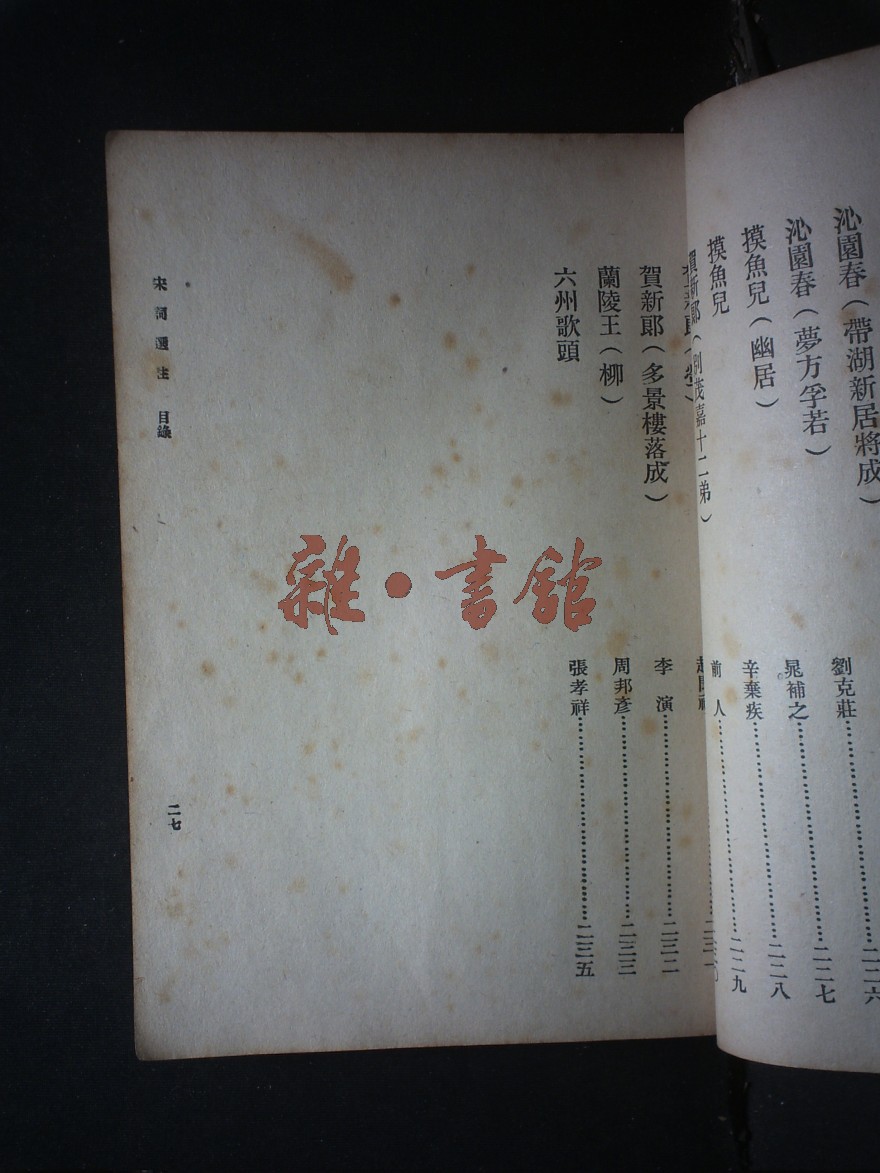 沁園春（帶湖新居將成）
沁園春（夢方孚若） 劉克莊……………………二二六
摸魚兒（幽居） 晁補之……………………二二七
摸魚兒 辛棄疾……………………二二八
賀新郞（別茂嘉十二弟） 前人……………………二二九
賀新郞（多景樓落成） 李演……………………二三二
蘭陵王（柳） 周邦彥……………………二三三
六州歌頭 張孝祥……………………二三五
宋詞選注 目錄
二七
雜·書館